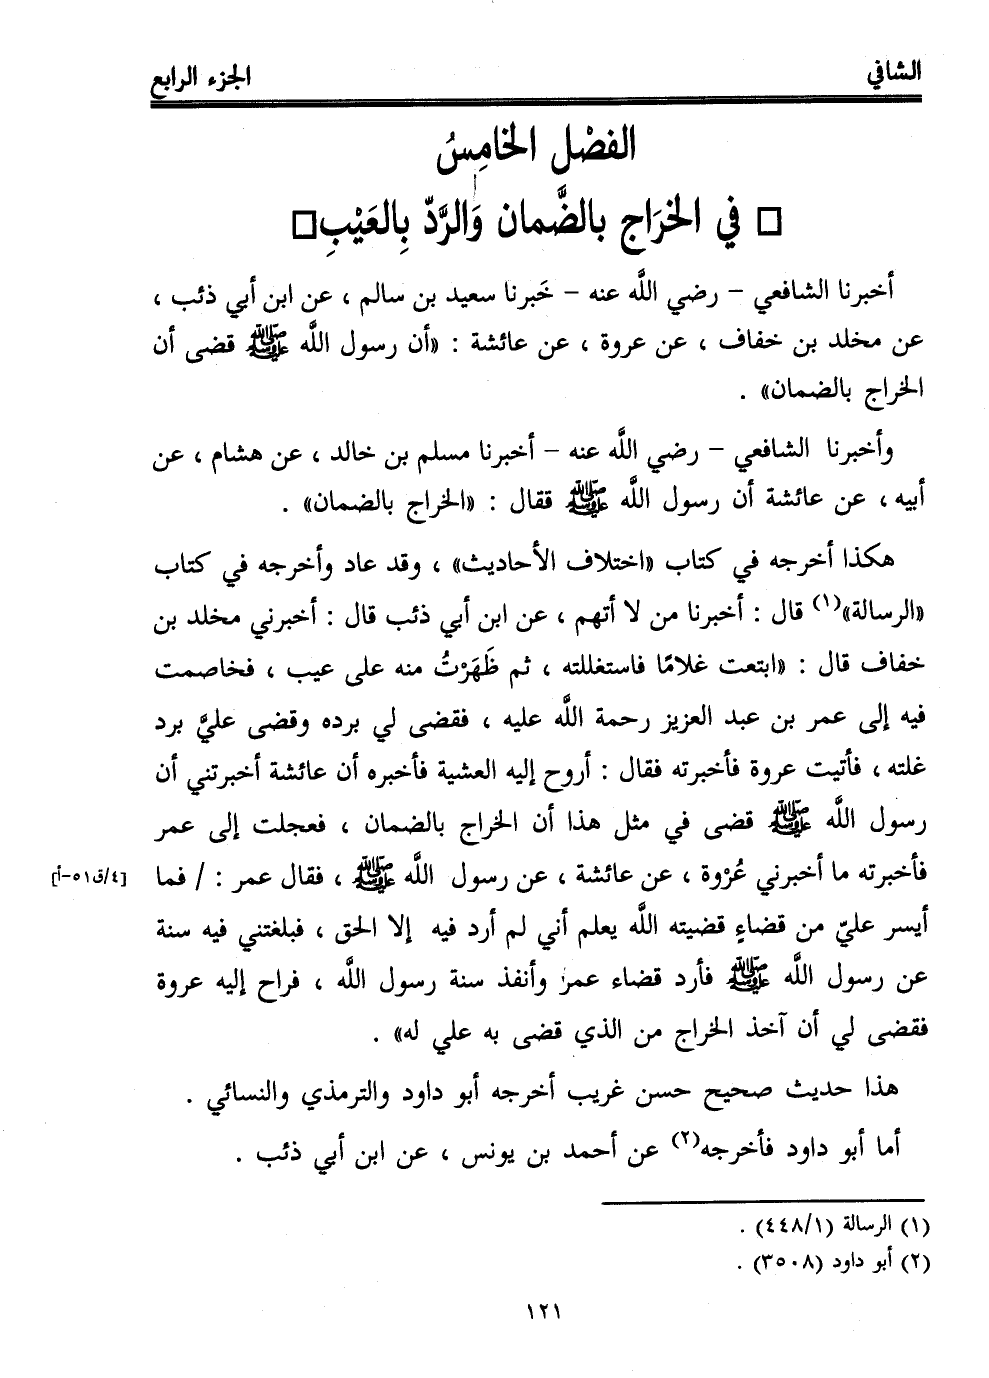 الشافي الجزء الرابع
الفصْل الخامِسُ
□ في الخرَاج بالضَّمان وَالرَّدّ بِالعَيْبِ □
أخبرنا الشافعي – رضي اللَّه عنه – خَبرنا سعيد بن سالم ، عن ابن أبي ذئب ،
عن مخلد بن خفاف ، عن عروة ، عن عائشة : «أن رسول اللَّه ﷺ قضى أن
الخراج بالضمان» .
وأخبرنا الشافعي – رضي اللَّه عنه – أخبرنا مسلم بن خالد ، عن هشام ، عن
أبيه ، عن عائشة أن رسول اللَّه ﷺ ققال : «الخراج بالضمان» .
هكذا أخرجه في كتاب «اختلاف الأحاديث» ، وقد عاد وأخرجه في كتاب
«الرسالة»(١) قال : أخبرنا من لا أتهم ، عن ابن أبي ذئب قال : أخبرني مخلد بن
خفاف قال : «ابتعت غلامًا فاستغللته ، ثم ظَهَرْتُ منه على عيب ، فخاصمت
فيه إلى عمر بن عبد العزيز رحمة اللَّه عليه ، فقضى لي برده وقضى عليَّ برد
غلته ، فأتيت عروة فأخبرته فقال : أروح إليه العشية فأخبره أن عائشة أخبرتني أن
رسول اللَّه ﷺ قضى في مثل هذا أن الخراج بالضمان ، فعجلت إلى عمر
فأخبرته ما أخبرني عُرْوة ، عن عائشة ، عن رسول اللَّه ﷺ ، فقال عمر : / فما [٤/ق٥١-أ]
أيسر عليّ من قضاءٍ قضيته اللَّه يعلم أني لم أرد فيه إلا الحق ، فبلغتني فيه سنة
عن رسول اللَّه ﷺ فأرد قضاء عمر وأنفذ سنة رسول اللَّه ، فراح إليه عروة
فقضى لي أن آخذ الخراج من الذي قضى به علي له» .
هذا حديث صحيح حسن غريب أخرجه أبو داود والترمذي والنسائي .
أما أبو داود فأخرجه(٢) عن أحمد بن يونس ، عن ابن أبي ذئب .
(١) الرسالة (٤٤٨/١) .
(٢) أبو داود (٣٥٠٨) .
١٢١